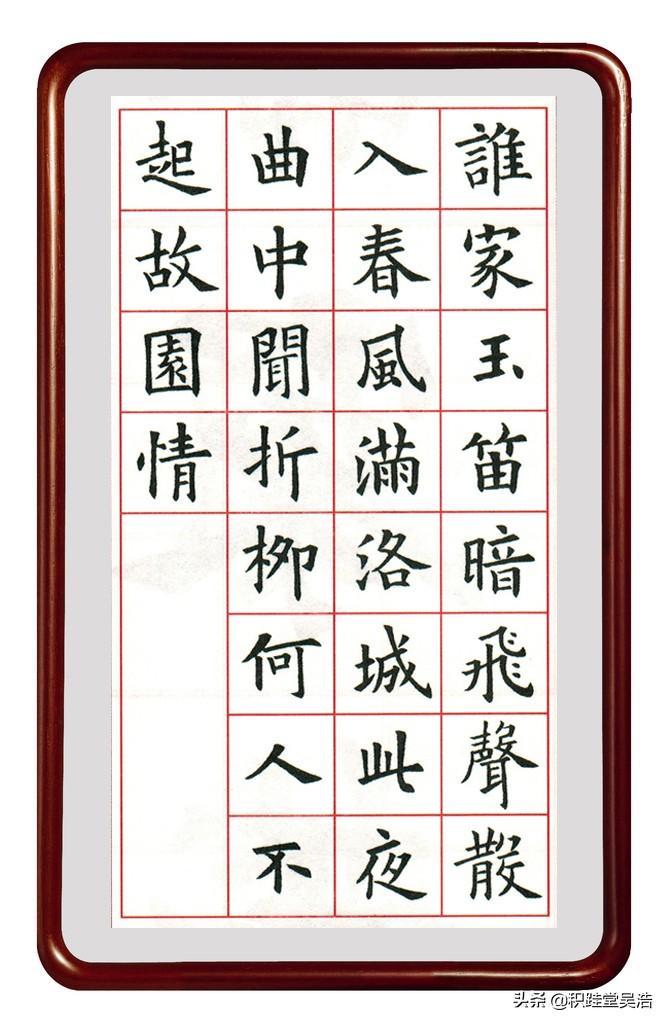 誰家玉笛暗飛聲散
入春風滿洛城此夜
曲中聞折柳何人不
起故園情
头条 @积跬堂吴浩